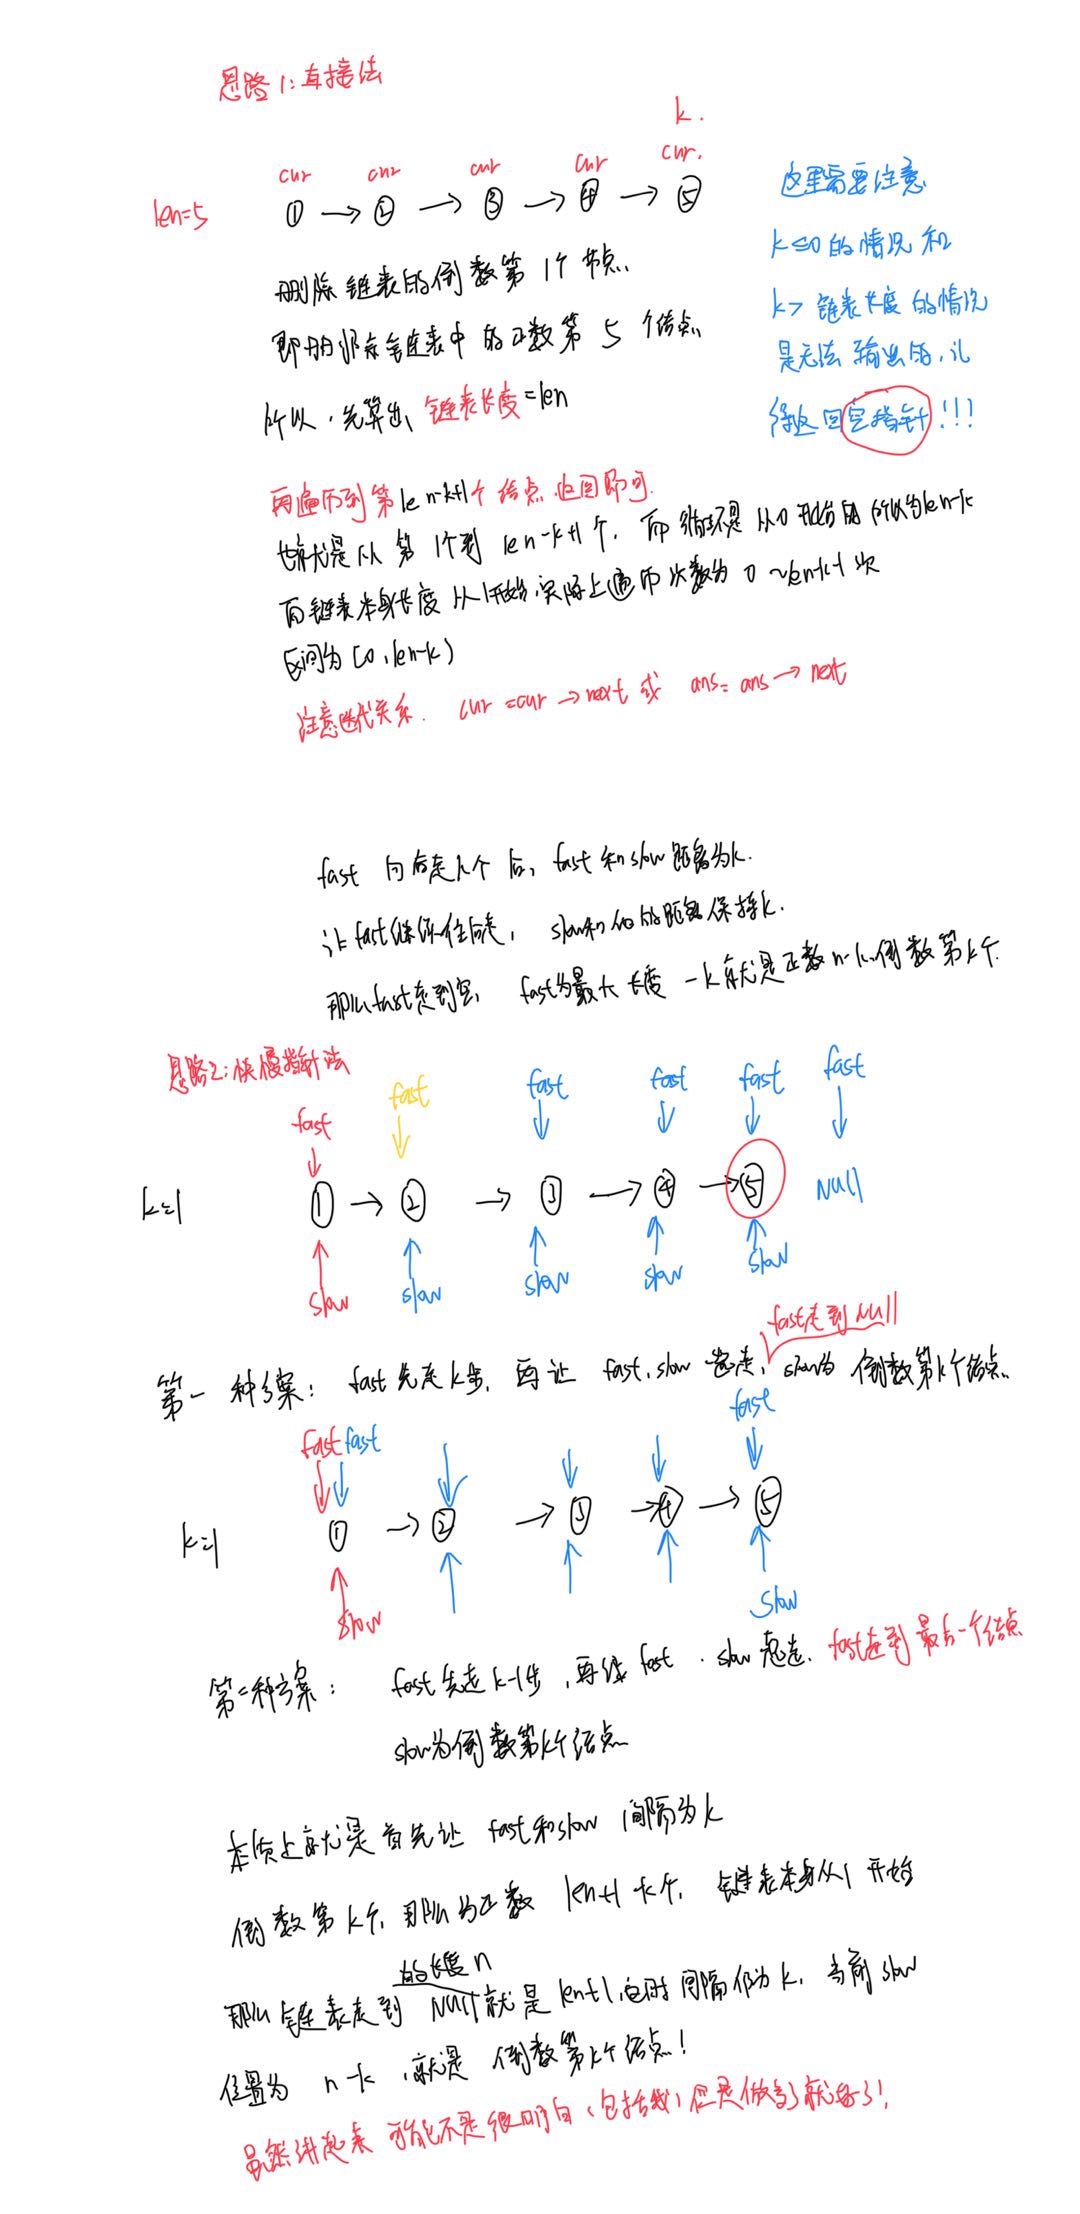 思路1:直接法
k.
cur cur cur cur cur.
len=5 ① → ② → ③ → ④ → ⑤
这里需要注意
k≤0的情况和
k>链表长度的情况
是无法输出的,让
得返回空指针!!!
删除链表的倒数第1个节点
即删除链表中的正数第5个结点
所以,先算出链表长度=len
再遍历到第len-k+1个结点返回即可.
也就是从第1个到len-k+1个,而循环是从0开始的所以为len-k
而链表本身长度从1开始,实际上遍历次数为0~len-k-1次
区间为[0,len-k)
注意迭代关系. cur=cur→next或 ans=ans→next
fast向后走k个后,fast和slow距离为k.
让fast继续往后走, slow和的距离保持k.
那么fast走到空, fast为最大长度-k就是正数n-k,倒数第k个.
思路2:快慢指针法
fast fast fast fast fast fast
k=1 ① → ② → ③ → ④ → ⑤ Null
slow slow slow slow slow
fast走到Null
第一种方案: fast先走k步,再让fast,slow一起走,slow为倒数第k个结点
fast fast fast
k=1 ① → ② → ③ → ④ → ⑤
slow slow
第二种方案: fast先走k-1步,再让fast、slow一起走.fast走到最后一个结点
slow为倒数第k个结点
本质上就是首先让fast和slow间隔为k
倒数第k个,那么为正数len+1-k个,链表本身从1开始
的长度n
那么链表走到Null就是len+1,此时间隔仍为k,当前slow
位置为n-k,就是倒数第k个结点!
虽然讲起来可能不是很明白(包括我)但是做多了就好了!